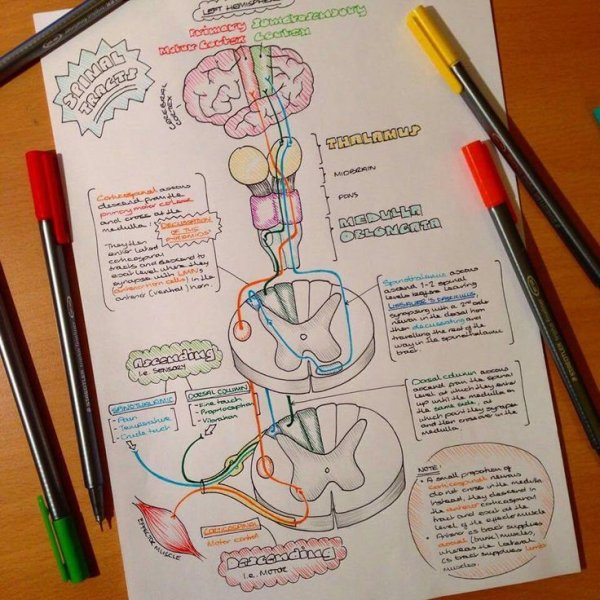 LEFT HEMISPHERE
Primary Somatosensory
Motor Cortex Cortex
SPINAL
TRACTS
CEREBRAL
CORTEX
THALAMUS
MIDBRAIN
PONS
MEDULLA
OBLONGATA
Corticospinal axons
descend from the
primary motor cortex
and cross at the
medulla
DECUSSATION
OF THE
PYRAMIDS
They then
enter lateral
corticospinal
tracts and descend to
exit level where they
synapse with LMNs
(anterior horn cells) in the
anterior (ventral) horn.
Spinothalamic axons
ascend 1-2 spinal
levels before leaving
LISSAUER'S FASCICULUS,
synapsing with a 2nd order
neuron in the dorsal horn
then decussating and
travelling the rest of the
way in the spinothalamic
tract.
Ascending
i.e. SENSORY
SPINOTHALAMIC
- Pain
- Temperature
- Crude touch
DORSAL COLUMN
- Fine touch
- Proprioception
- Vibration
Dorsal column axons
ascend from the spinal
level at which they enter
up until the medulla on
the same side, at
which point they synapse
and then cross over in the
medulla.
EFFECTOR MUSCLE
CORTICOSPINAL
Motor control
Descending
i.e. MOTOR
NOTE:
• A small proportion of
corticospinal neurons
do not cross in the medulla
instead, they descend in
the anterior corticospinal
tract and exit at the
level of the effector muscle
• Anterior CS tract supplies
axial (trunk) muscles,
whereas the lateral
CS tract supplies limb
muscles.